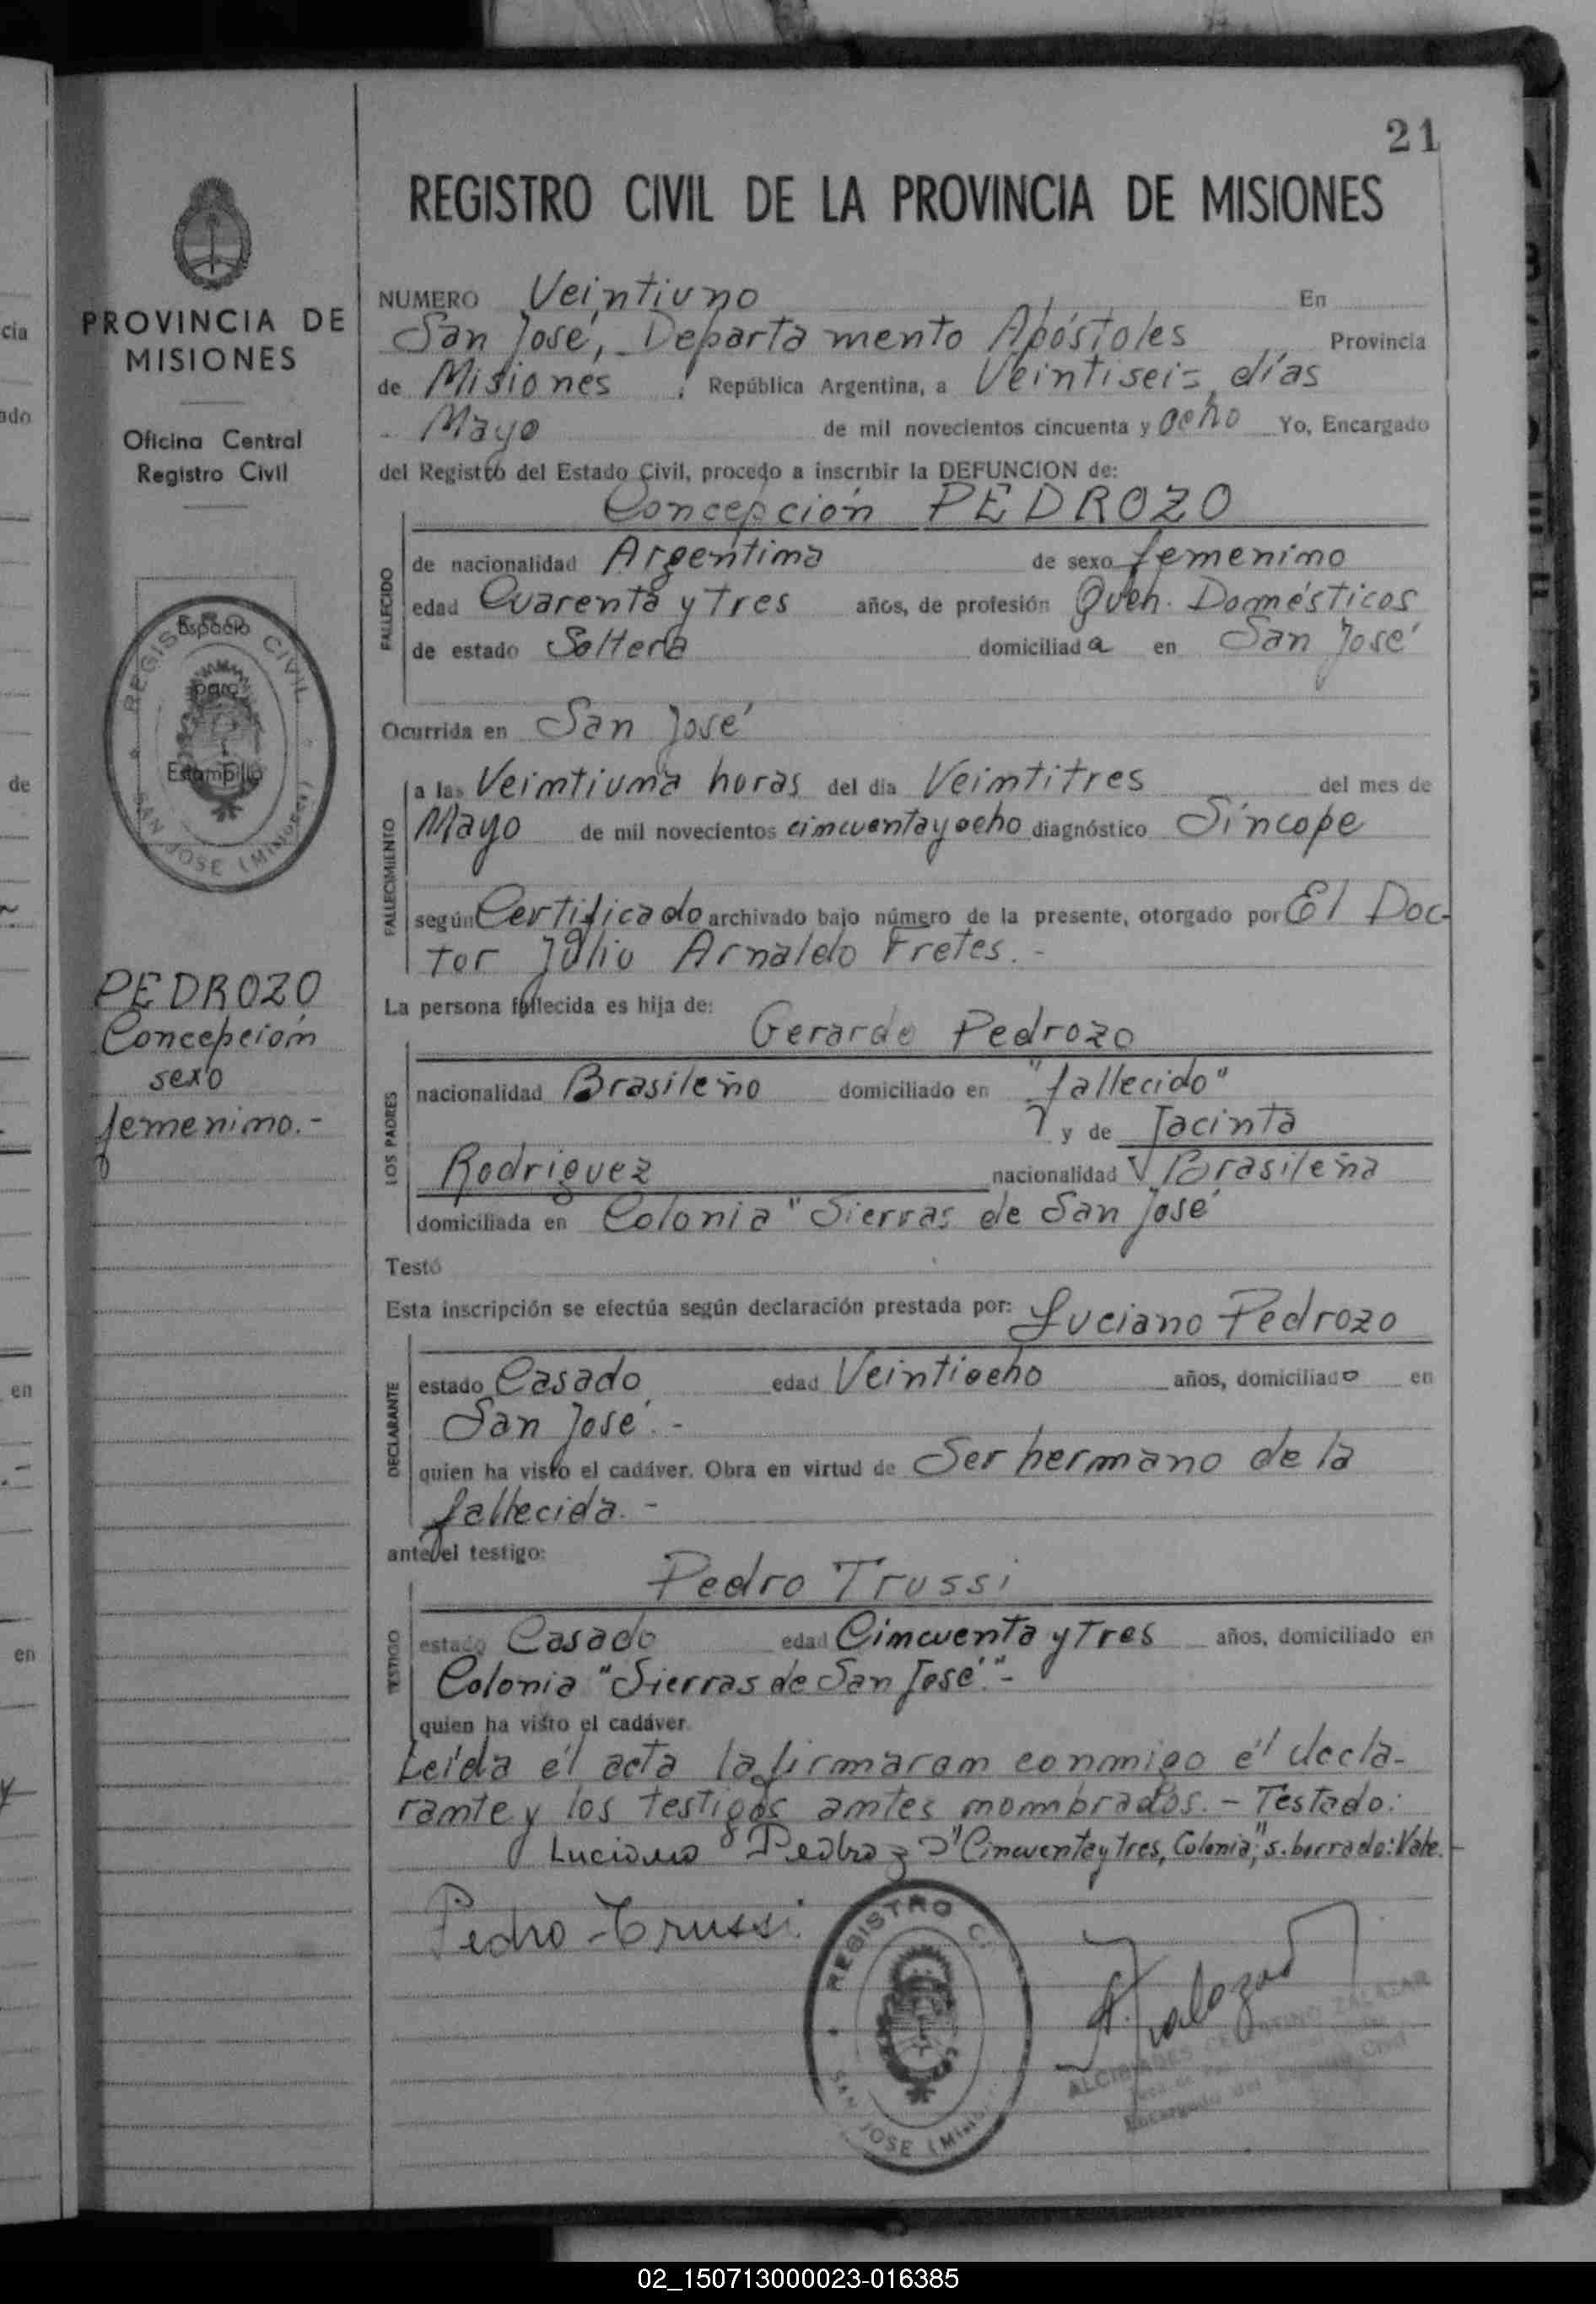 21
REGISTRO CIVIL DE LA PROVINCIA DE MISIONES
PROVINCIA DE
MISIONES
Oficina Central
Registro Civil
REGISTRO CIVIL
Espacio
para
Estampilla
SAN JOSE (Misiones)
PEDROZO
Concepción
sexo
femenino.-
NUMERO Veintiuno En
San José, Departamento Apóstoles Provincia
de Misiones, República Argentina, a Veintiseis días
Mayo de mil novecientos cincuenta y ocho Yo, Encargado
del Registro del Estado Civil, procedo a inscribir la DEFUNCION de:
Concepción PEDROZO
FALLECIDO
de nacionalidad Argentina de sexo femenino
edad Cuarenta y tres años, de profesión Queh. Domésticos
de estado Soltera domiciliada en San José
Ocurrida en San José
FALLECIMIENTO
a las Veintiuna horas del día Veintitres del mes de
Mayo de mil novecientos cincuenta y ocho diagnóstico Síncope
según Certificado archivado bajo número de la presente, otorgado por El Doc-
tor Julio Arnaldo Fretes.-
La persona fallecida es hija de:
Gerardo Pedrozo
LOS PADRES
nacionalidad Brasileño domiciliado en "fallecido"
y de Jacinta
Rodriguez nacionalidad Brasileña
domiciliada en Colonia "Sierras de San José
Testó
Esta inscripción se efectúa según declaración prestada por: Luciano Pedrozo
DECLARANTE
estado Casado edad Veintiocho años, domiciliado en
San José.-
quien ha visto el cadáver. Obra en virtud de Ser hermano de la
fallecida.-
ante el testigo:
Pedro Trussi
TESTIGO
estado Casado edad Cincuenta y tres años, domiciliado en
Colonia "Sierras de San José".-
quien ha visto el cadáver.
Leída él acta la firmaron conmigo él decla-
rante y los testigos antes nombrados.- Testado:
Luciano Pedrozo "Cincuenta y tres, Colonia", s. borrado: Vale.-
Pedro Trussi
REGISTRO C.
SAN JOSE (Mis
A. Zalazar
ALCIBIADES CELESTINO ZALAZAR
Encargado del Registro Civil
02_150713000023-016385